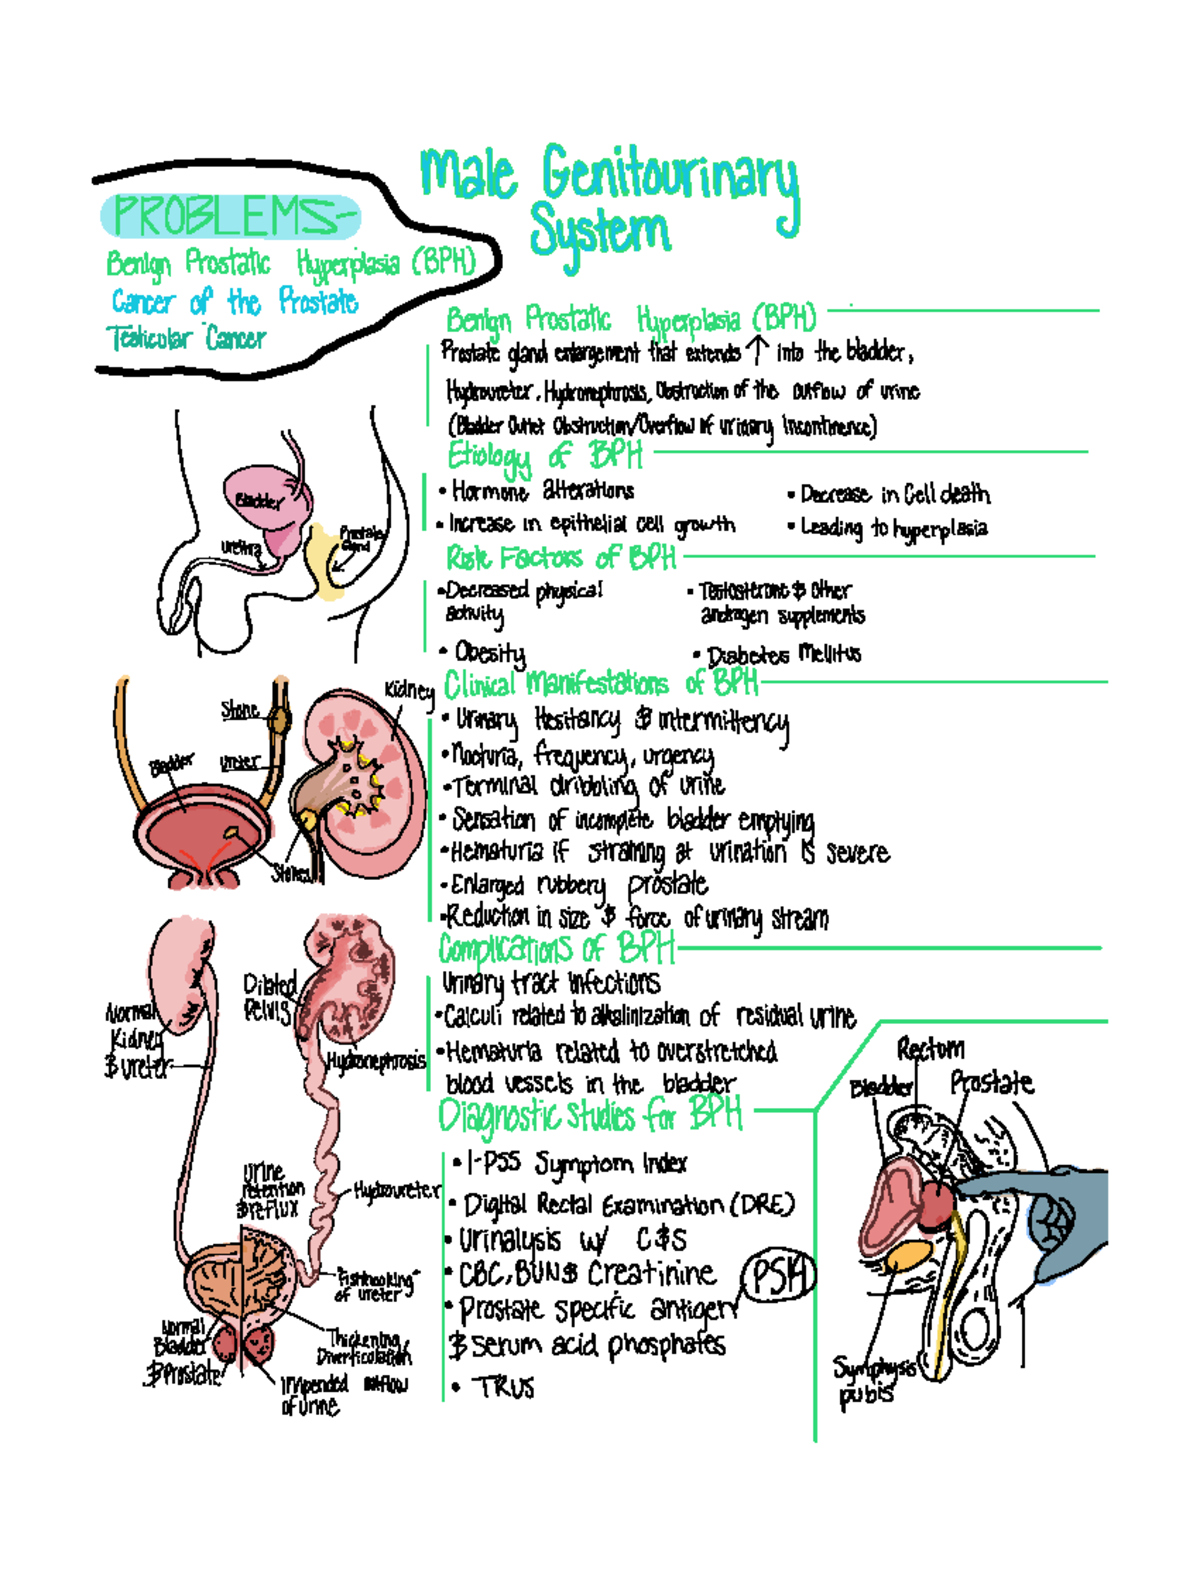 Male Genitourinary
System
PROBLEMS-
Benign Prostatic Hyperplasia (BPH)
Cancer of the Prostate
Testicular Cancer
Benign Prostatic Hyperplasia (BPH)
Prostate gland enlargement that extends ↑ into the bladder,
Hydroureter, Hydronephrosis, Obstruction of the outflow of urine
(Bladder Outlet Obstruction/Overflow of urinary Incontinence)
Etiology of BPH
• Hormone alterations
• Increase in epithelial cell growth
• Decrease in Cell death
• Leading to hyperplasia
Risk Factors of BPH
• Decreased physical
activity
• Obesity
• Testosterone & other
androgen supplements
• Diabetes Mellitus
Clinical Manifestations of BPH
• Urinary Hesitancy & intermittency
• Nocturia, frequency, urgency
• Terminal dribbling of urine
• Sensation of incomplete bladder emptying
• Hematuria if straining at urination is severe
• Enlarged rubbery prostate
• Reduction in size & force of urinary stream
Complications of BPH
Urinary tract infections
• Calculi related to alkalinization of residual urine
• Hematuria related to overstretched
blood vessels in the bladder
Diagnostic studies for BPH
• I-PSS Symptom Index
• Digital Rectal Examination (DRE)
• Urinalysis w/ C&S
• CBC, BUN & Creatinine
• Prostate specific antigen
PSA
& serum acid phosphates
• TRUS
Bladder
Urethra
Prostate
Gland
Kidney
Stone
Bladder
Ureter
Stones
Normal
Kidney
& Ureter
Dilated
Pelvis
Hydronephrosis
Urine
retention
& reflux
Hydroureter
"Fishhooking"
of ureter
Normal
Bladder
& Prostate
Thickening,
Diverticulation
Impended outflow
of urine
Rectom
Bladder
Prostate
Symphysis
pubis